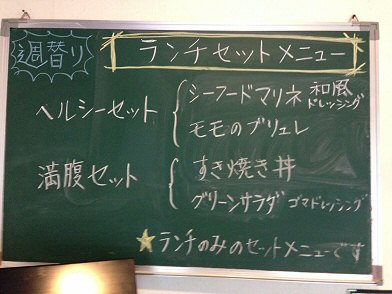 週替り
ランチセットメニュー
ヘルシーセット
シーフードマリネ 和風ドレッシング
モモのブリュレ
満腹セット
すき焼き丼
グリーンサラダ ゴマドレッシング
★ランチのみのセットメニューです